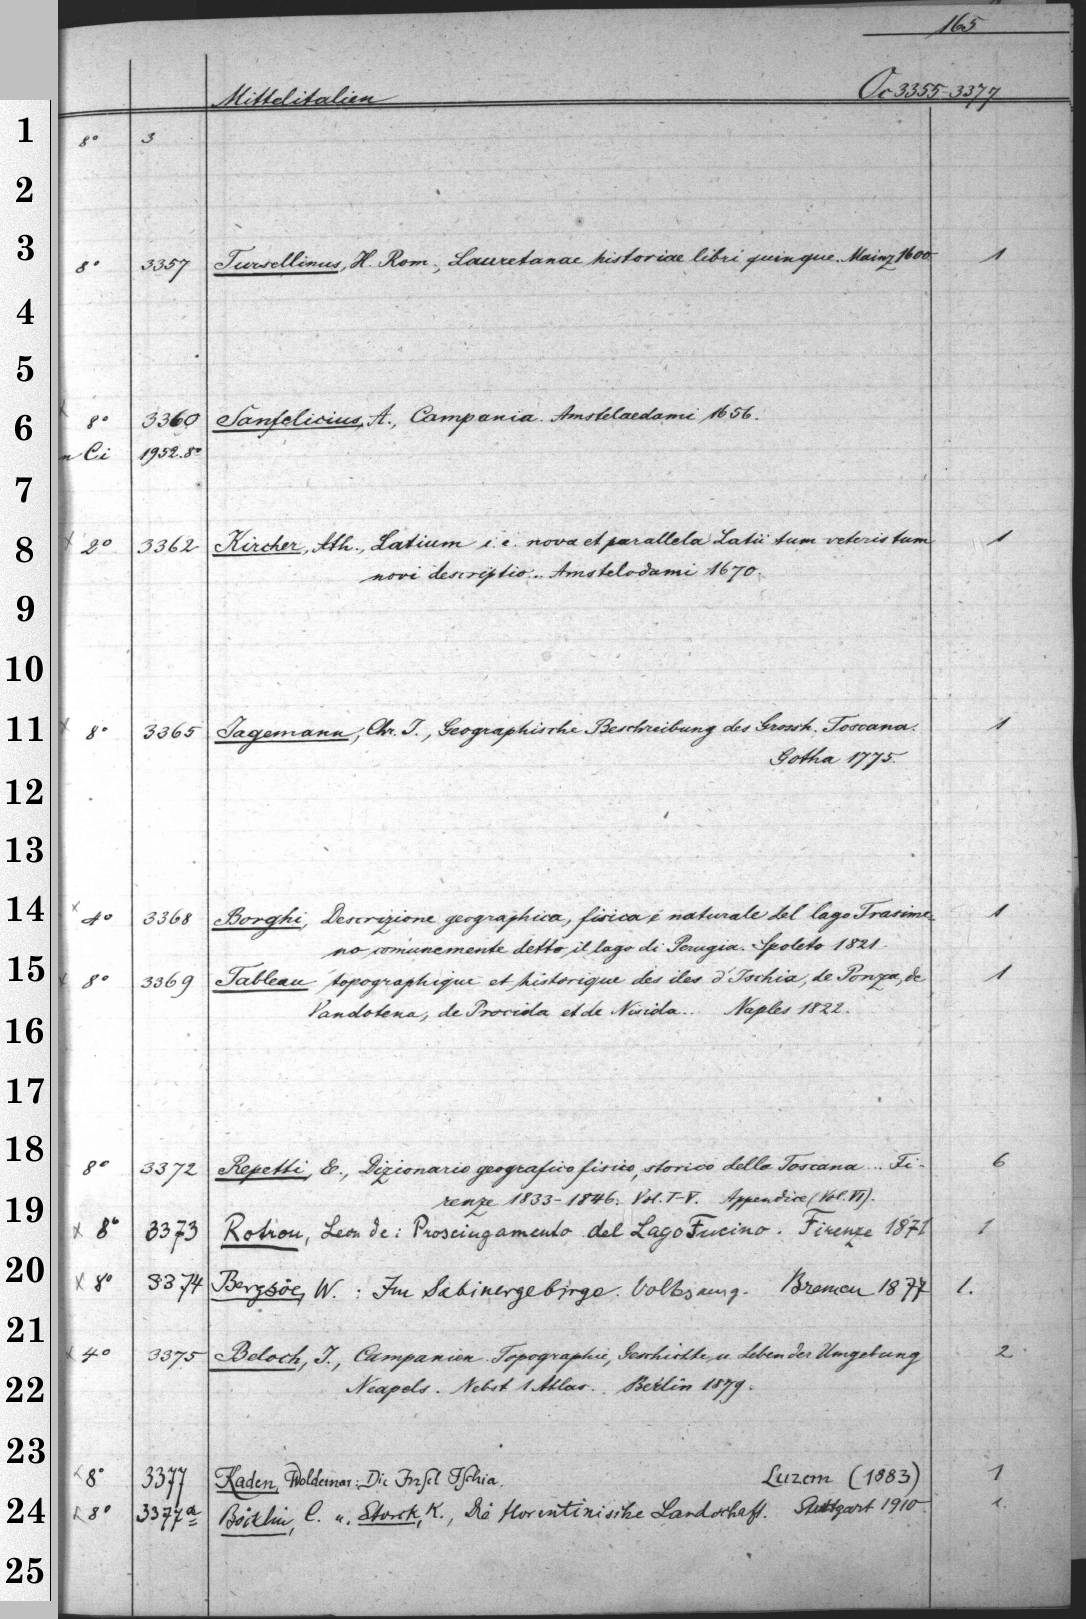 165
Mittelitalien Oc 3355-3377
1 8° 3
2
3 8° 3357 Tursellinus, H. Rom., Lauretanae historiae libri quinque. Mainz 1600 1
4
5
6 x 8° 3360 Sanfelicius, A., Campania. Amstelaedami 1656.
Ci 1952.8°
7
8 x 2° 3362 Kircher, Ath., Latium i. e. nova et parallela Latii tum veteris tum 1
novi descriptio.. Amstelodami 1670.
9
10
11 x 8° 3365 Jagemann, Chr. J., Geographische Beschreibung des Grossh. Toscana. 1
Gotha 1775.
12
13
14 x 4° 3368 Borghi, Descrizione geographica, fisica é naturale del lago Trasime- 1
no comunemente detto il lago di Perugia. Spoleto 1821.
15 x 8° 3369 Tableau topographique et historique des iles d'Ischia, de Ponza, de 1
Vandotena, de Procida et de Nisida... Naples 1822.
16
17
18 8° 3372 Repetti, E., Dizionario geografico fisico, storico della Toscana... Fi- 6
renze 1833-1846. Vol. I-V. Appendice (Vol. VI).
19 x 8° 3373 Rotrou, Leon de: Prosciugamento del Lago Fucino. Firenze 1871 1
20 x 8° 3374 Bergsöe, W. : Im Sabinergebirge. Volksausg. Bremen 1877 1.
21 x 4° 3375 Beloch, J., Campanien. Topographie, Geschichte, u Leben der Umgebung 2
22 Neapels. Nebst 1 Atlas. Berlin 1879.
23 x 8° 3377 Kaden, Woldemar: Die Insel Ischia. Luzern (1883) 1
24 x 8° 3377a Böcklin, C. u. Storck, K., Die florentinische Landschaft. Stuttgart 1910 1.
25